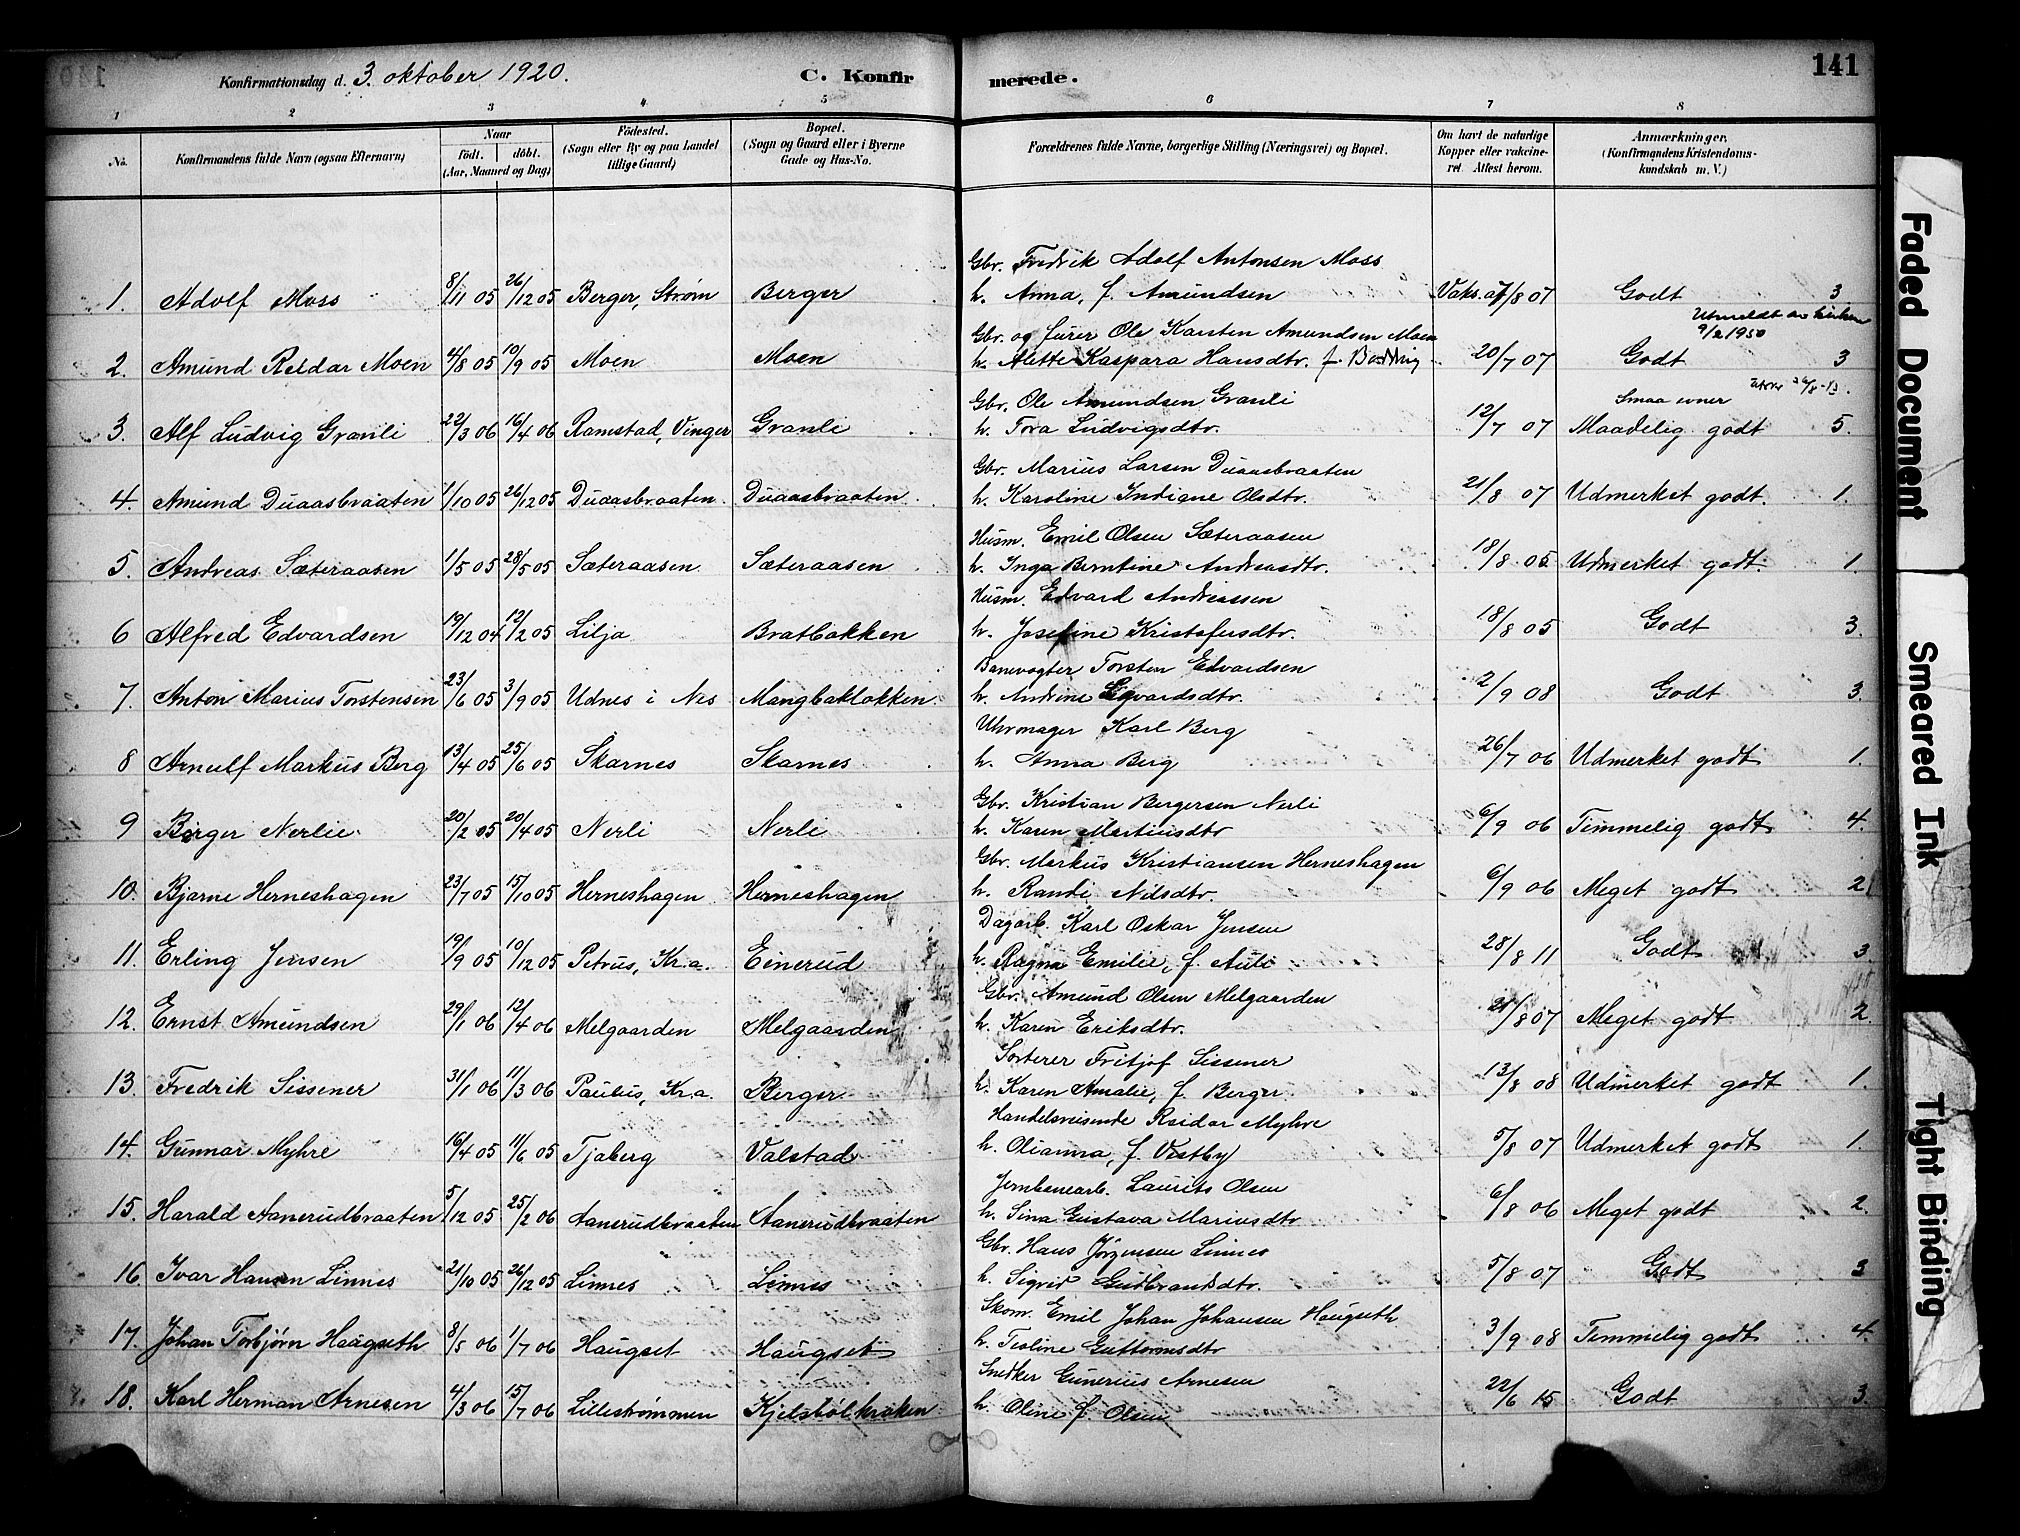 Konfirmationsdag d. 3. oktober 1920.
C. Konfirmerede.
141
1 2 3 4 5 6 7 8
No.
Konfirmandens fulde Navn (ogsaa Efternavn)
Naar
födt. döbt.
(Aar, Maaned og Dag)
Födested.
(Sogn eller By og paa Landet
tillige Gaard)
Bopæl.
(Sogn og Gaard eller i Byerne
Gade og Hus-No.
Forældrenes fulde Navne, borgerlige Stilling (Næringsvei) og Bopæl.
Om havt de naturlige
Kopper eller vakcine-
ret. Attest herom.
Anmærkninger,
(Konfirmandens Kristendoms-
kundskab m. V.)
Gbr. Fredrik Adolf Antonsen Moss
1. Adolf Moss 8/11 05 26/12 05 Berger, Strøm Berger h. Anna, f. Amundsen Vaks. /8 07 Godt 3
Utmeldt av kirken
9/2 1950
Gbr. og furer Ole Karsten Amundsen Moen
2. Amund Reidar Moen 4/8 05 10/9 05 Moen Moen h. Alette Kaspara Hansdtr. f. 20/7 07 Godt 3
Gbr. Ole Amundsen Granli Smaa evner
3. Alf Ludvig Granli 22/3 06 16/4 06 Ramstad, Vinger Granli h. Tora Ludvigsdtr. 12/7 07 Maadelig godt 5.
Gbr. Marius Larsen Duaasbraaten
4. Amund Duaasbraaten 1/10 05 26/12 05 Duaasbraaten. Duaasbraaten. h. Karoline Indiane Olsdtr. 21/8 07 Udmerket godt. 1.
Husm. Emil Olsen Sæteraasen
5. Andreas Sæteraasen 1/5 05 28/5 05 Sæteraasen. Sæteraasen h. Inga Berntine Andreasdtr. 18/8 05 Udmerket godt. 1.
Husm. Edvard Andreassen
6 Alfred Edvardsen 19/12 04 12/2 05 Lilja Bratbakken h. Josefine Kristofersdtr. 18/8 05 Godt 3.
Banevogter Torsten Edvardsen
7. Anton Marius Torstensen 23/6 05 3/9 05 Udnes i Nes Mangbakløkken. h. Andrine Edvardsdtr. 2/9 08 Godt 3.
Uhrmager Karl Berg
8 Arnulf Markus Berg 13/4 05 25/6 05 Skarnes Skarnes h. Anna Berg 26/7 06 Udmerket godt 1.
Gbr. Kristian Bergersen Nerli
9 Birger Nerlie. 20/2 05 20/4 05 Nerli Nerli h. Karen Martinsdtr 6/9 06 Temmelig godt 4.
Gbr. Markus Kristiansen Herneshagen
10. Bjarne Herneshagen 23/7 05 15/10 05 Herneshagen Herneshagen h. Randi Nilsdtr. 6/9 06 Meget godt 2
Dagarb. Karl Oskar Jensen
11. Erling Jensen 19/9 05 10/12 05 Petrus, Kr.a. Einerud h. Ragna Emilie, f. Auli 28/8 11 Godt 3
Gbr. Amund Olsen Melgaarden
12. Ernst Amundsen 29/1 06 12/4 06 Melgaarden Melgaarden h. Karen Eriksdtr. 21/8 07 Meget godt 2.
Sorterer Fritjof Sissener
13. Fredrik Sissener 31/1 06 11/3 06 Paulus, Kr.a. Berger h. Karen Amalie, f. Berger 13/8 08 Udmerket godt 1.
Handelsreisende Reidar Myhre
14. Gunnar Myhre 16/4 05 11/6 05 Tjaberg Valstad h. Olianna, f. Vestby 5/8 07 Udmerket godt 1.
Jernbanearb. Laurits Olsen
15. Harald Aanerudbraaten 5/12 05 25/2 06 Aanerudbraaten Aanerudbraaten h. Sina Gustava Mariusdtr 6/8 06 Meget godt 2.
Gbr. Hans Jørgensen Linnes
16. Ivar Hansen Linnes 21/10 05 26/12 05 Linnes Linnes h. Sigrid Gudbrandsdtr. 5/8 07 Godt 3
Skom. Emil Johan Johansen Haugseth
17. Johan Torbjørn Haugseth 8/5 06 1/7 06 Haugset Haugset h. Teoline Guttormsdtr 3/9 08 Temmelig godt 4.
Snedker Gunerius Arnesen
18. Karl Herman Arnesen 4/3 06 15/7 06 Lillestrømmen Kjelsbølkroken. h. Oline f. Olsen 22/6 15 Godt 3.
Faded Document
Smeared Ink
Tight Binding